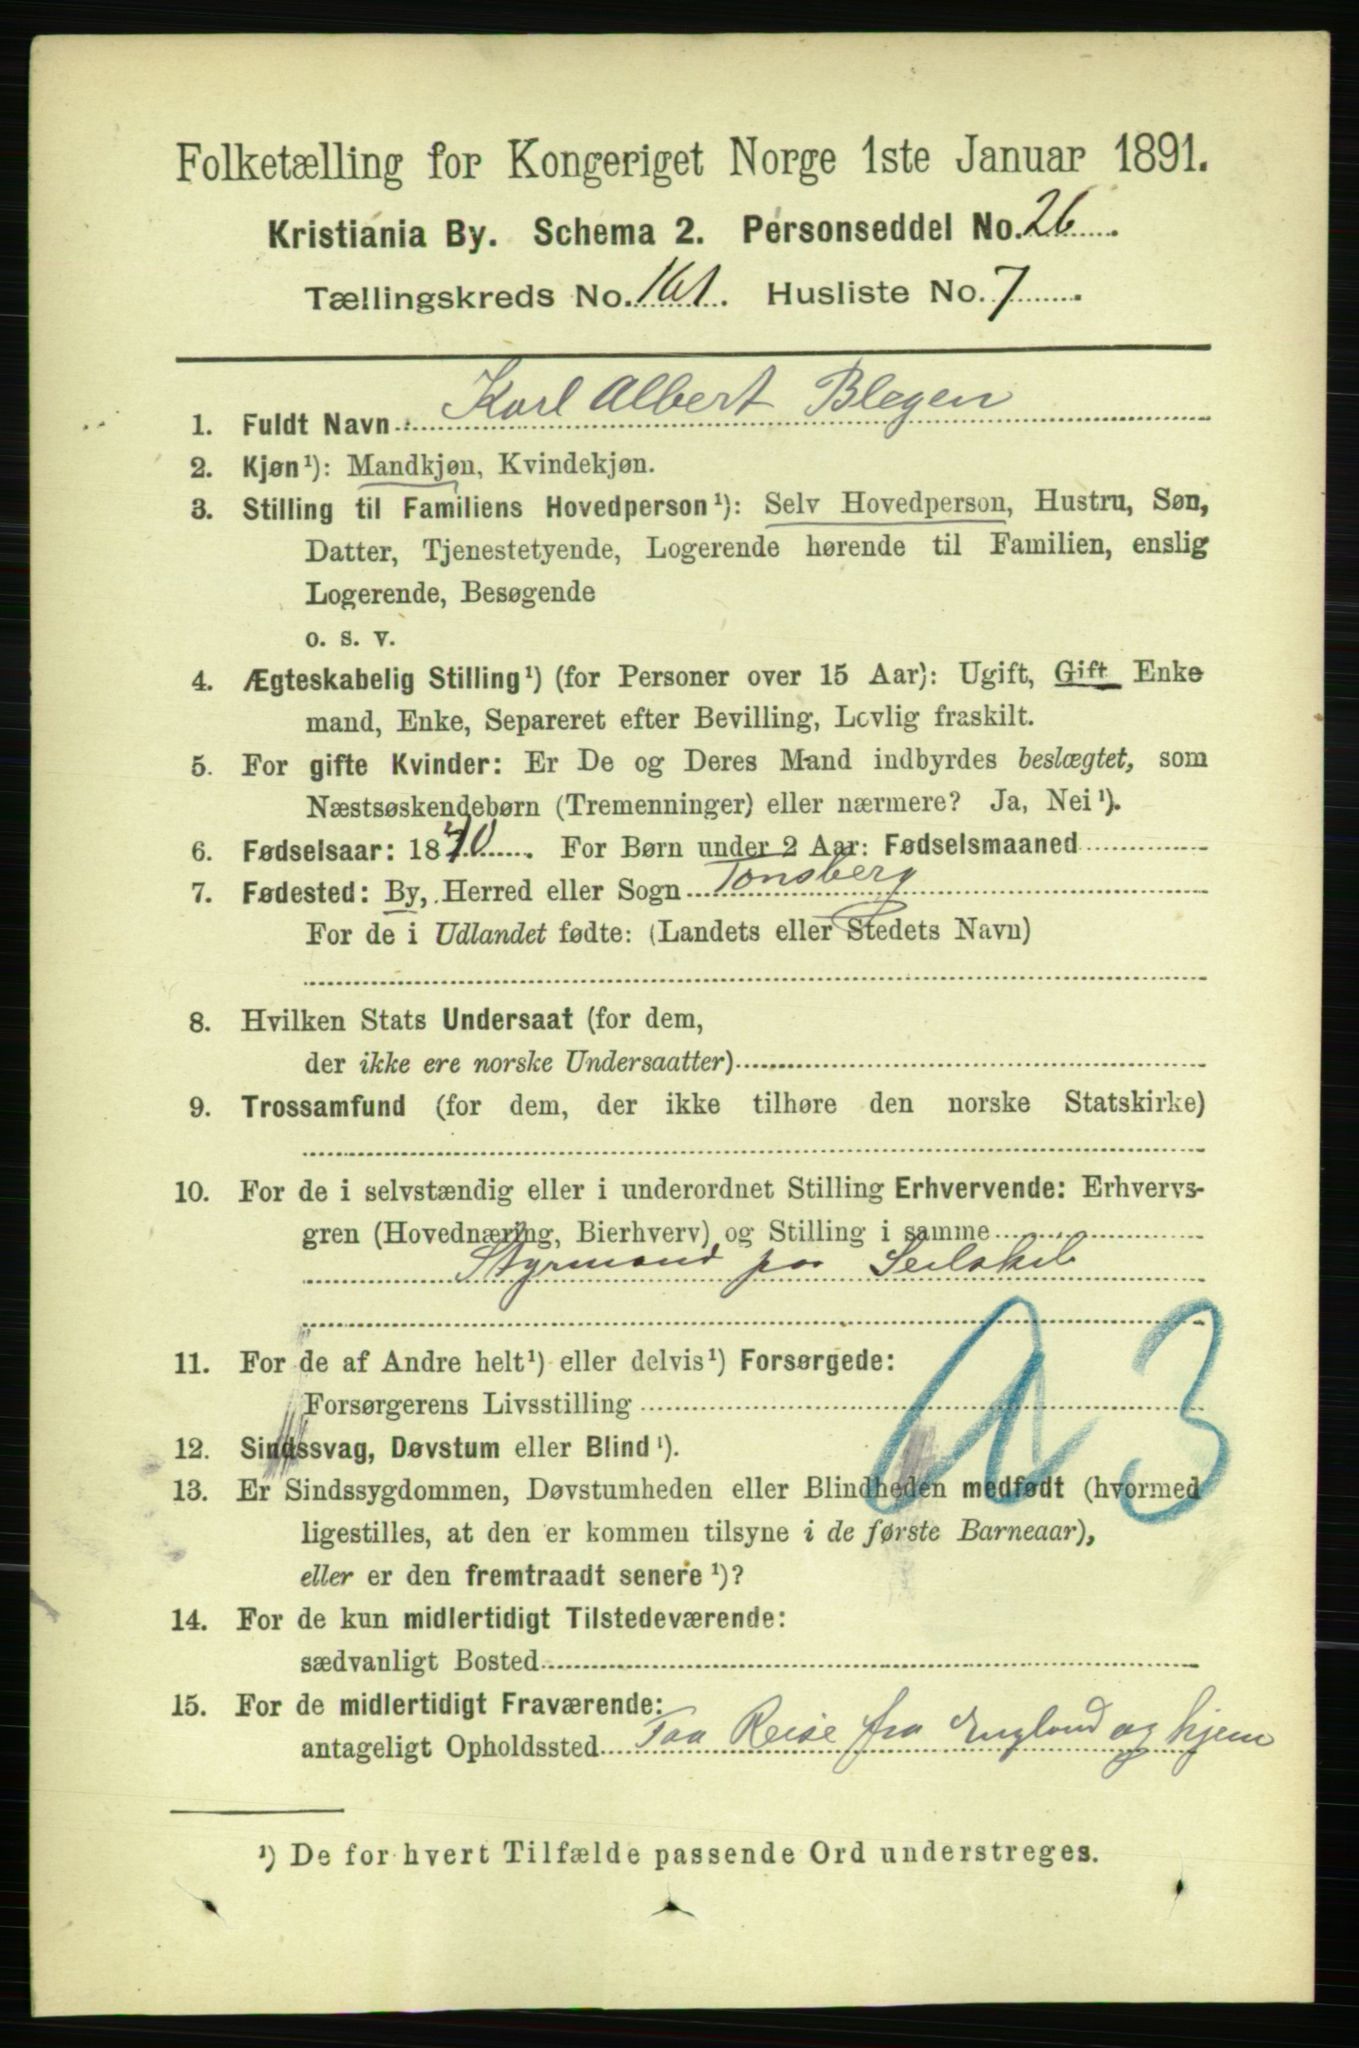 Folketælling for Kongeriget Norge 1ste Januar 1891.
Kristiania By. Schema 2. Personseddel No. 26.
Tællingskreds No. 161. Husliste No. 7.
1. Fuldt Navn Karl Albert Blegen
2. Kjøn¹): Mandkjøn, Kvindekjøn.
3. Stilling til Familiens Hovedperson¹): Selv Hovedperson, Hustru, Søn,
Datter, Tjenestetyende, Logerende hørende til Familien, enslig
Logerende, Besøgende
o. s. v.
4. Ægteskabelig Stilling¹) (for Personer over 15 Aar): Ugift, Gift Enke
mand, Enke, Separeret efter Bevilling, Lovlig fraskilt.
5. For gifte Kvinder: Er De og Deres Mand indbyrdes beslægtet, som
Næstsøskendebørn (Tremenninger) eller nærmere? Ja, Nei¹).
6. Fødselsaar: 18 . For Børn under 2 Aar: Fødselsmaaned
7. Fødested: By, Herred eller Sogn Tonsberg
For de i Udlandet fødte: (Landets eller Stedets Navn)
8. Hvilken Stats Undersaat (for dem,
der ikke ere norske Undersaatter)
9. Trossamfund (for dem, der ikke tilhøre den norske Statskirke)
10. For de i selvstændig eller i underordnet Stilling Erhvervende: Erhvervs-
gren (Hovednæring, Bierhverv) og Stilling i samme
Styrmand paa Seilskib
11. For de af Andre helt¹) eller delvis¹) Forsørgede:
Forsørgerens Livsstilling
a 3
12. Sindssvag, Døvstum eller Blind¹).
13. Er Sindssygdommen, Døvstumheden eller Blindheden medfødt (hvormed
ligestilles, at den er kommen tilsyne i de første Barneaar),
eller er den fremtraadt senere¹)?
14. For de kun midlertidigt Tilstedeværende:
sædvanligt Bosted
15. For de midlertidigt Fraværende:
antageligt Opholdssted Paa Reise fra England og hjem
¹) De for hvert Tilfælde passende Ord understreges.